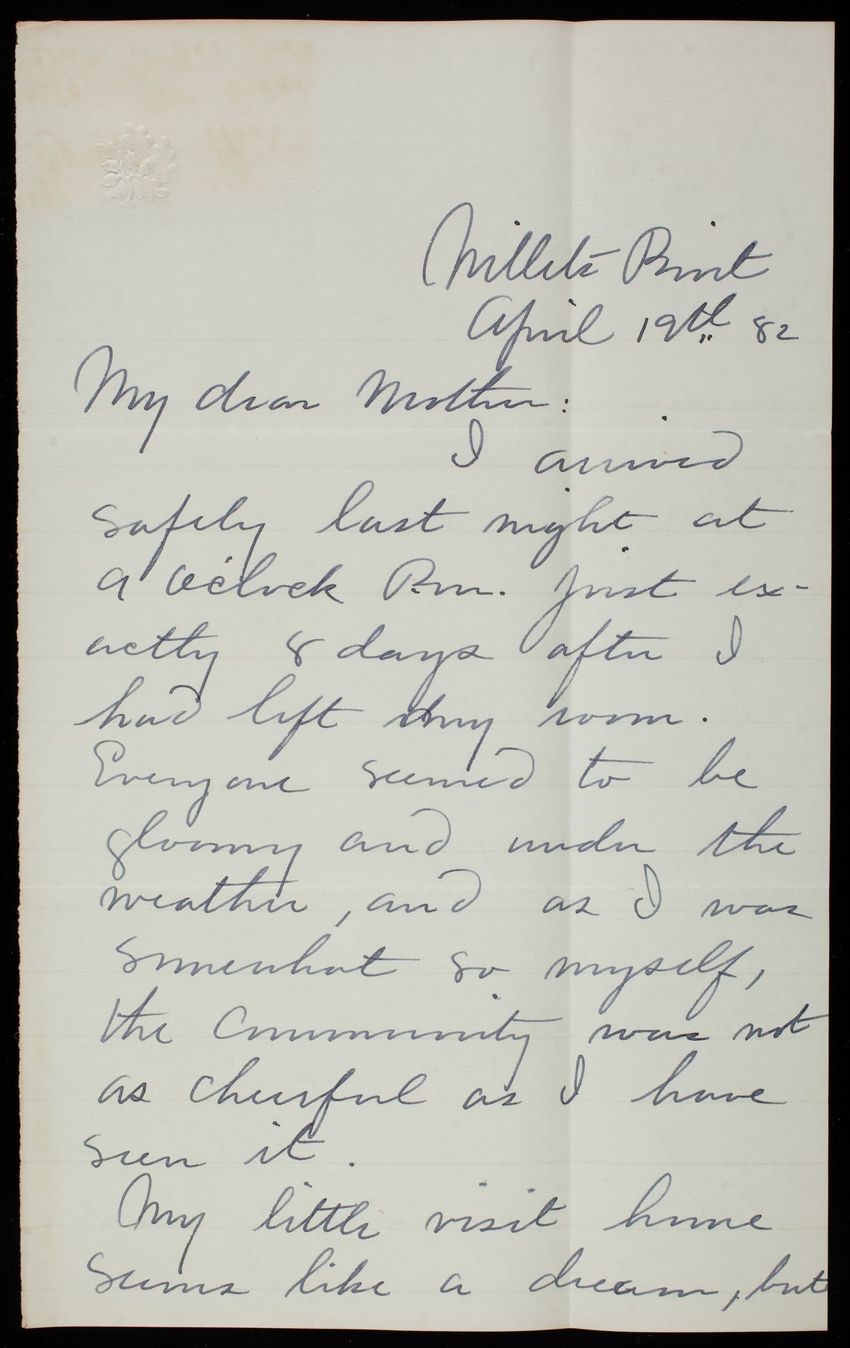 Willets Point
April 19th 82
My dear Mother:
I arrived
safely last night at
9 o'clock P.m. just ex-
actly 8 days after I
had left my room.
Everyone seemed to be
gloomy and under the
weather, and as I was
somewhat so myself,
the community was not
as cheerful as I have
seen it.
My little visit home
seems like a dream, but